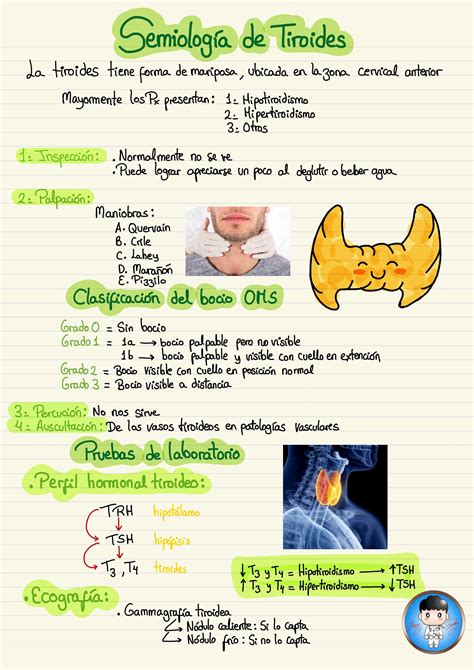 Semiología de Tiroides
La tiroides tiene forma de mariposa, ubicada en la zona cervical anterior
Mayormente los Px presentan: 1- Hipotiroidismo
2- Hipertiroidismo
3- Otros
1- Inspección: • Normalmente no se ve
• Puede lograr apreciarse un poco al deglutir o beber agua
2- Palpación:
Maniobras:
A. Quervain
B. Crile
C. Lahey
D. Marañón
E. Pizzilo
Clasificación del bocio OMS
Grado 0 = Sin bocio
Grado 1 = 1a → bocio palpable pero no visible
1b → bocio palpable y visible con cuello en extención
Grado 2 = Bocio visible con cuello en posición normal
Grado 3 = Bocio visible a distancia
3- Percución: No nos sirve
4- Auscultación: De los vasos tiroideos en patologías vasculares
Pruebas de laboratorio
• Perfil hormonal tiroideo:
TRH hipotálamo
TSH hipófisis
T3, T4 tiroides
↓ T3 y T4 = Hipotiroidismo → ↑TSH
↑ T3 y T4 = Hipertiroidismo → ↓TSH
• Ecografía:
• Gammagrafía tiroidea
→ Nódulo caliente: Si lo capta
→ Nódulo frío: Si no lo capta